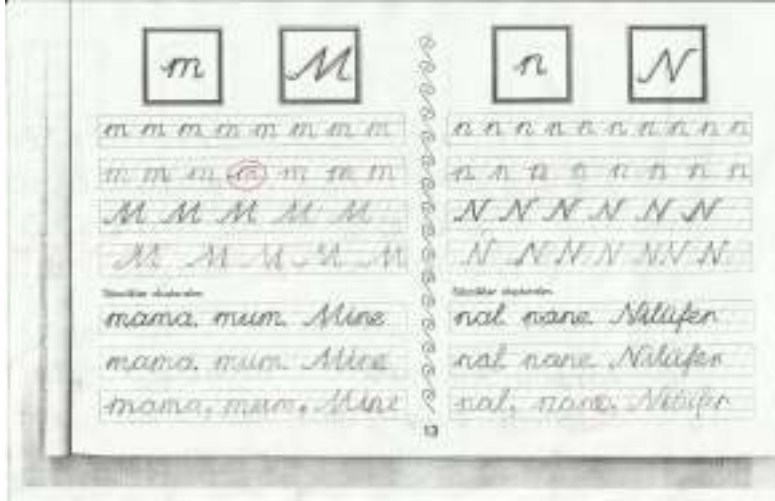 m M
m m m m m m m m
m m m m m m m
M M M M M
M M M M M
mama. mum. Mine
mama. mum. Mine
mama, mum, Mine
n N
n n n n n n n n n n
n n n n n n n n
N N N N N N
N N N N N N N
nal nane Nilüfer
nal nane Nilüfer
nal, nane. Nilüfer
13